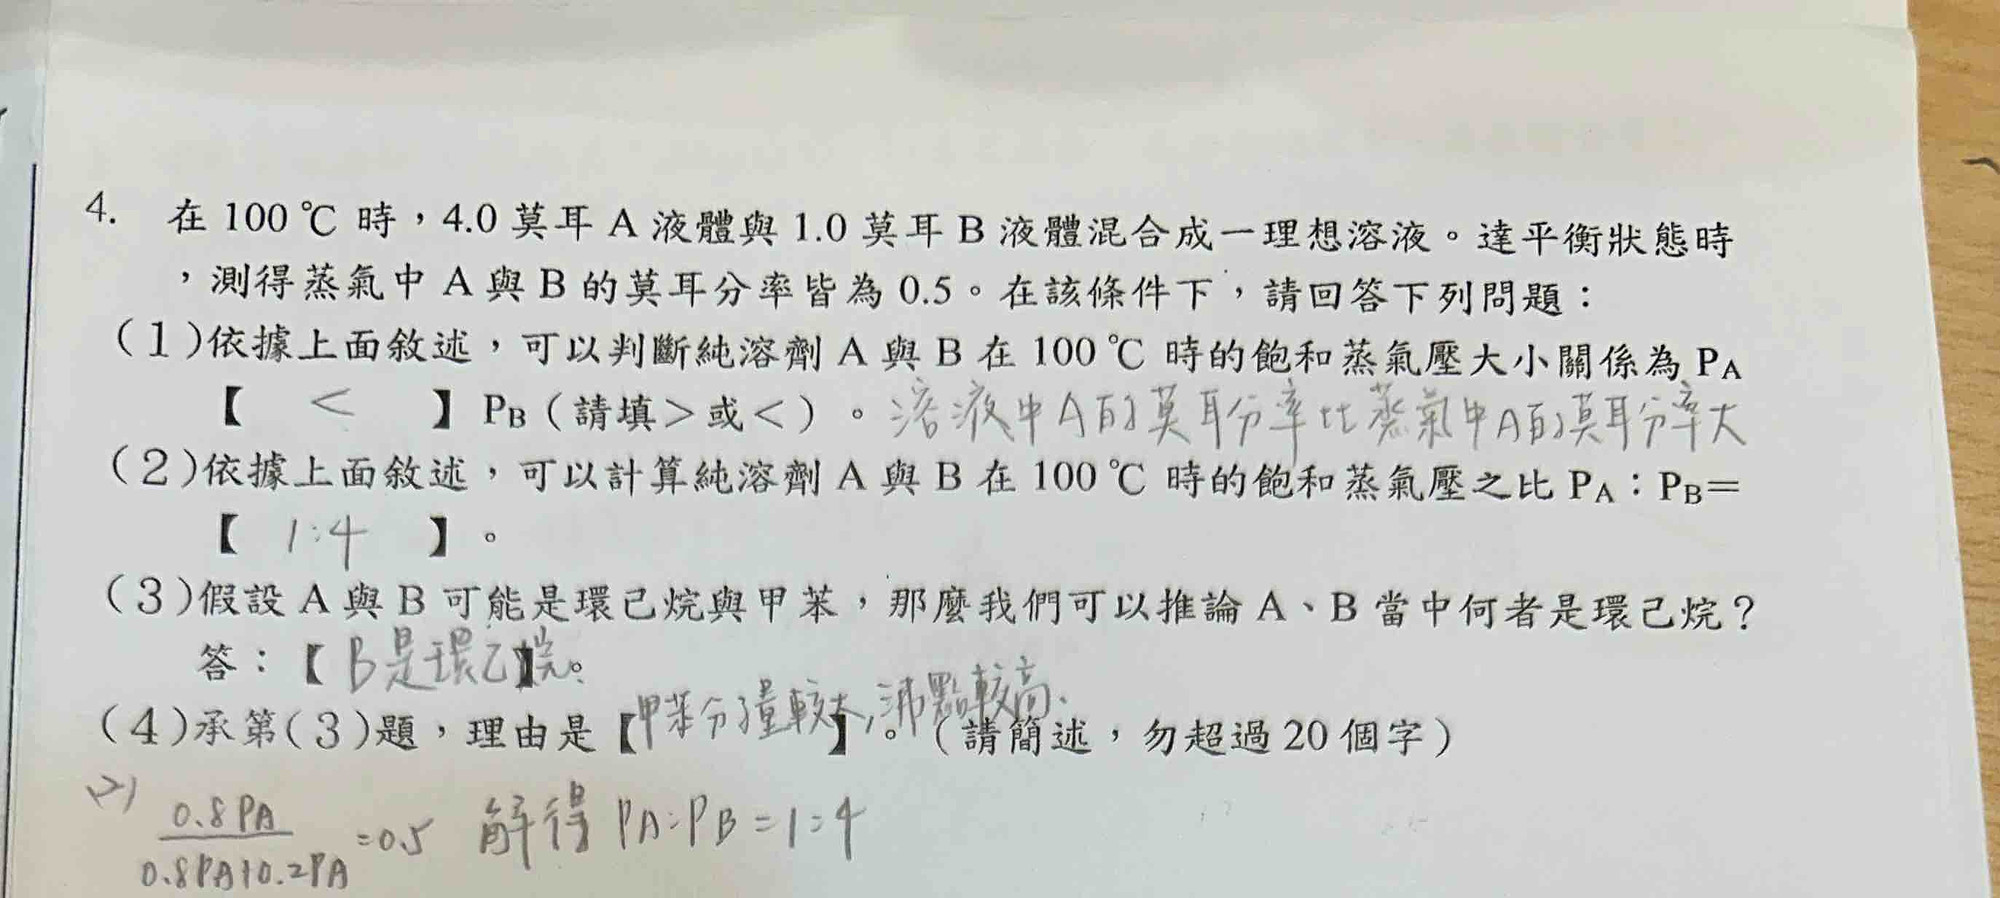 4. 在 100 ℃ 時，4.0 莫耳 A 液體與 1.0 莫耳 B 液體混合成一理想溶液。達平衡狀態時
，測得蒸氣中 A 與 B 的莫耳分率皆為 0.5。在該條件下，請回答下列問題：
(1)依據上面敘述，可以判斷純溶劑 A 與 B 在 100 ℃ 時的飽和蒸氣壓大小關係為 PA
【 < 】PB（請填＞或＜）。溶液中A的莫耳分率比蒸氣中A的莫耳分率大
(2)依據上面敘述，可以計算純溶劑 A 與 B 在 100 ℃ 時的飽和蒸氣壓之比 PA：PB＝
【 1:4 】。
(3)假設 A 與 B 可能是環己烷與甲苯，那麼我們可以推論 A、B 當中何者是環己烷？
答：【B是環乙烷。】
(4)承第(3)題，理由是【甲苯分子量較大,沸點較高.】。（請簡述，勿超過 20 個字）
(2) 0.8PA / 0.8PA+0.2PA =0.5 解得 PA:PB=1:4